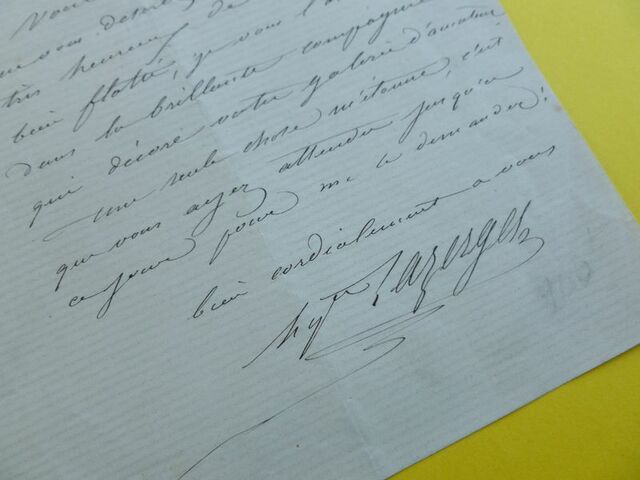 Vous
vous
très heureux de
bien flatté, je vous l'a
dans la brillante compagnie
qui décore votre galerie d'amateur
Une seule chose m'étonne, c'est
que vous ayez attendu jusqu'à
ce jour pour me le demander!
bien cordialement à vous
hyte Lazerges
900